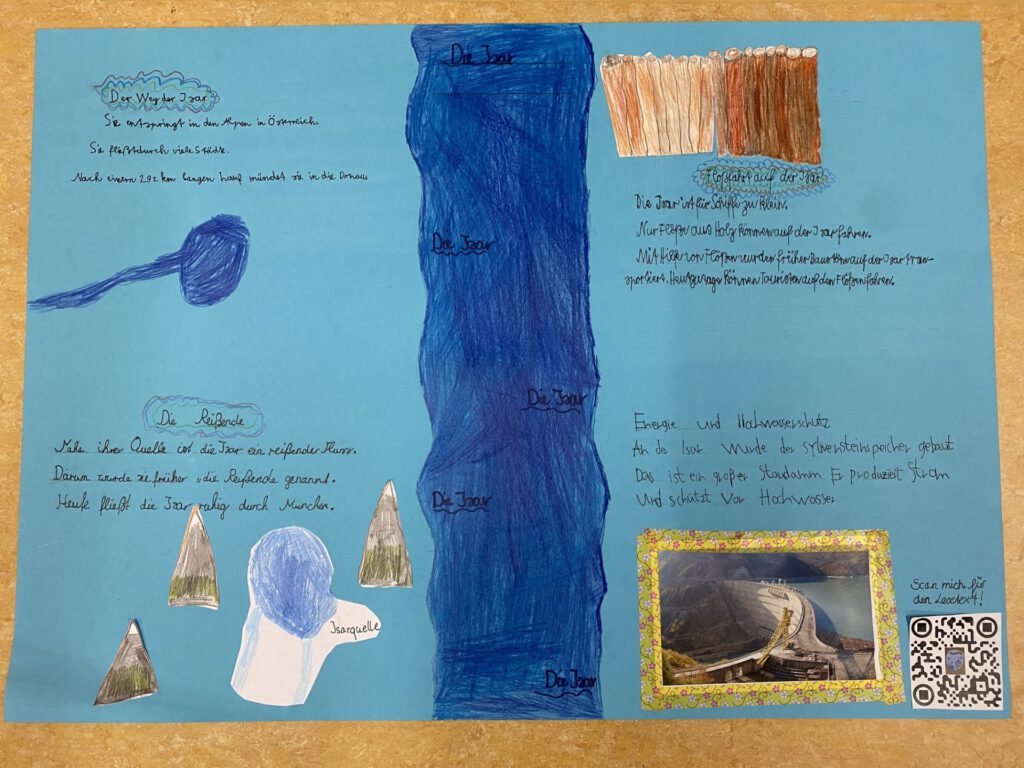 Die Isar
Der Weg der Isar
Sie entspringt in den Alpen in Österreich.
Sie fließt durch viele Städte.
Nach einem 292 km langen Lauf mündet sie in die Donau
Die Reißende
Nahe ihrer Quelle ist die Isar ein reißender Fluss.
Darum wurde sie früher die Reißende genannt.
Heute fließt die Isar ruhig durch München.
Isarquelle
Die Isar
Die Isar
Die Isar
Die Isar
Floßfahrt auf der Isar
Die Isar ist für Schiffe zu klein.
Nur Flöße aus Holz können auf der Isar fahren.
Mit Hilfe von Flößen wurden früher Baustoffe auf der Isar tran-
sportiert. Heutzutage können Touristen auf den Flößen fahren.
Energie und Hochwasserschutz
An de Isar wurde der sylvensteinspeicher gebaut
Das ist ein großer Staudamm Er produziert Strom
Und schützt vor Hochwasser
Scan mich für
den Lesetext!